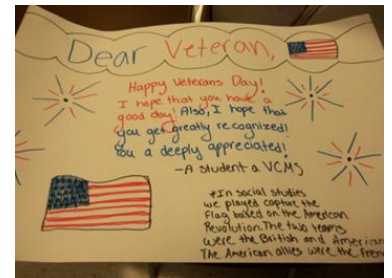 Dear Veteran,
Happy Veterans Day!
I hope that you have a
good day! Also, I hope that
you get greatly recognized!
You a deeply appreciated!
-A student a VCMS
*In social studies
we played capture the
Flag based on the American
Revolution. The two teams
were the British and American
The American allies were the French